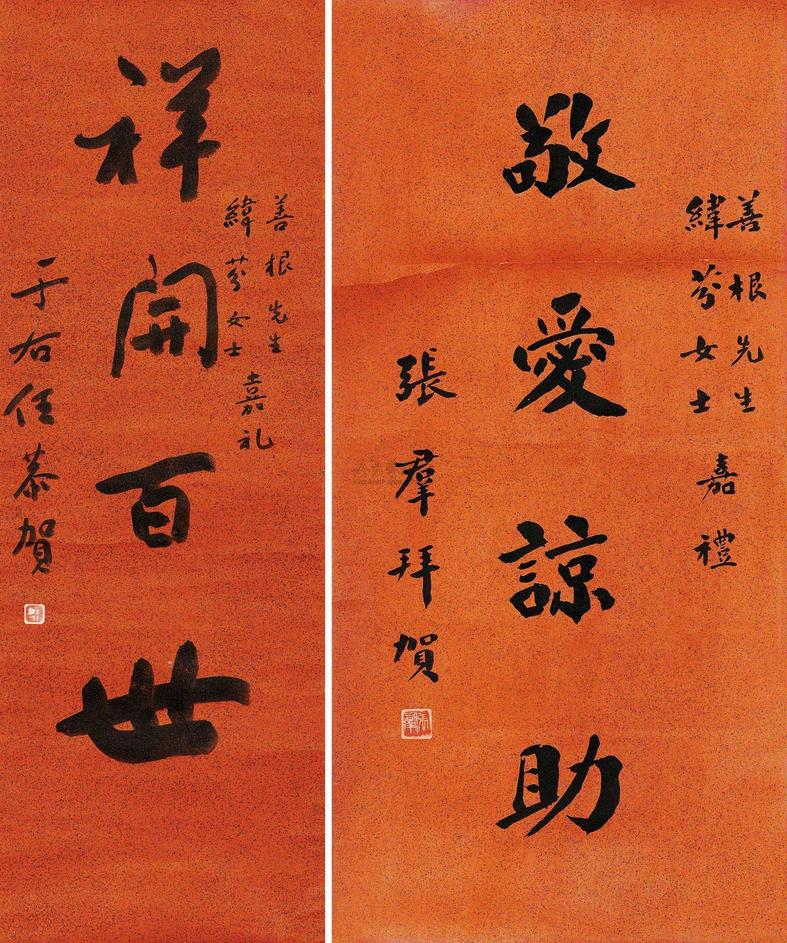 敬愛諒助
善根先生
緯芬女士
嘉禮
張羣拜賀
張羣
祥開百世
善根先生
緯芬女士
嘉礼
于右任恭賀